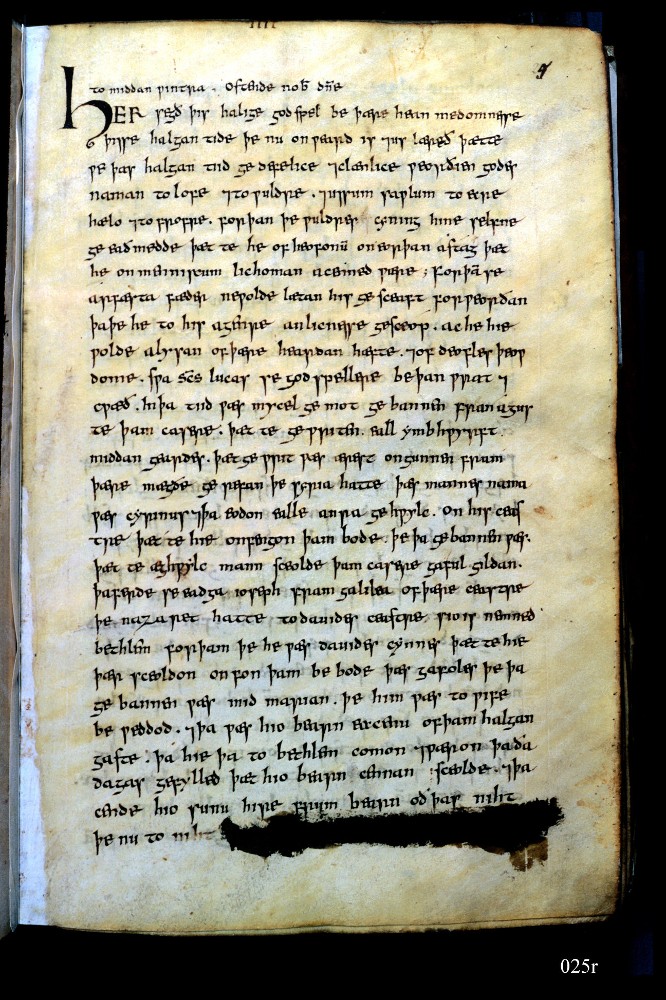 to middan wintra . ostende nob dne
HER segð þis halige godspel be þære hean medomnesse
þisse halgan tide þe nu onweard is ⁊us læreð þætte
we þas halgan tiid gedefelice ⁊clænlice weorðien godes
naman to lofe ⁊to wuldre . ⁊ussum sawlum to ecre
hælo ⁊to frofre . forþan þe wuldres cyning hine selfne
geeaðmedde þæt te he of heofonū on eorþan astag þæt
he on menniscum lichoman acenned wære ; Forþā se
arfæsta fæder ne wolde lætan his gesceaft forweorðan
þa þe he to his agenre anlicnesse gesceop . ac he hie
wolde alysan of þære heardan hæfte . ⁊of deofles þeow
dome . swa scs lucas se godspellere be þan wrat ⁊
cwæð . In þa tiid wæs mycel gemot gebannen fram agus
te þam casere . þæt te gewriten eall ymbhwyrft
middan geardes . þæt gewrit wæs ærest ongunnen fram
þære mægðe gerefan þe syria hatte þæs mannes nama
wæs cyrinus ⁊þa eodon ealle anra gehwylc . on his ceas
tre þæt te hie onfengon þam bode . þe þa gebannen wæs .
þæt te æghwylc mann sceolde þam casere gaful gildan .
þa ferde se eadga ioseph fram galilea of þære ceastre
þe nazaret hatte to dauides ceastre . sio is nemned
bethlem forþam þe he wæs dauides cynnes þæt te hie
þær sceoldon onfon þam bebode þæs gafoles þe þa
gebannen wæs mid marian . þe him wæs to wife
beweddod . ⁊þa wæs hio bearn eacenu of þam halgan
gaste . þa hie þa to bethlem comon ⁊wæron þa ða
dagas gefylled þæt hio bearn cennan sceolde . ⁊þa
cende hio sunu hire frum bearn oð þas niht
þe nu to niht
025r